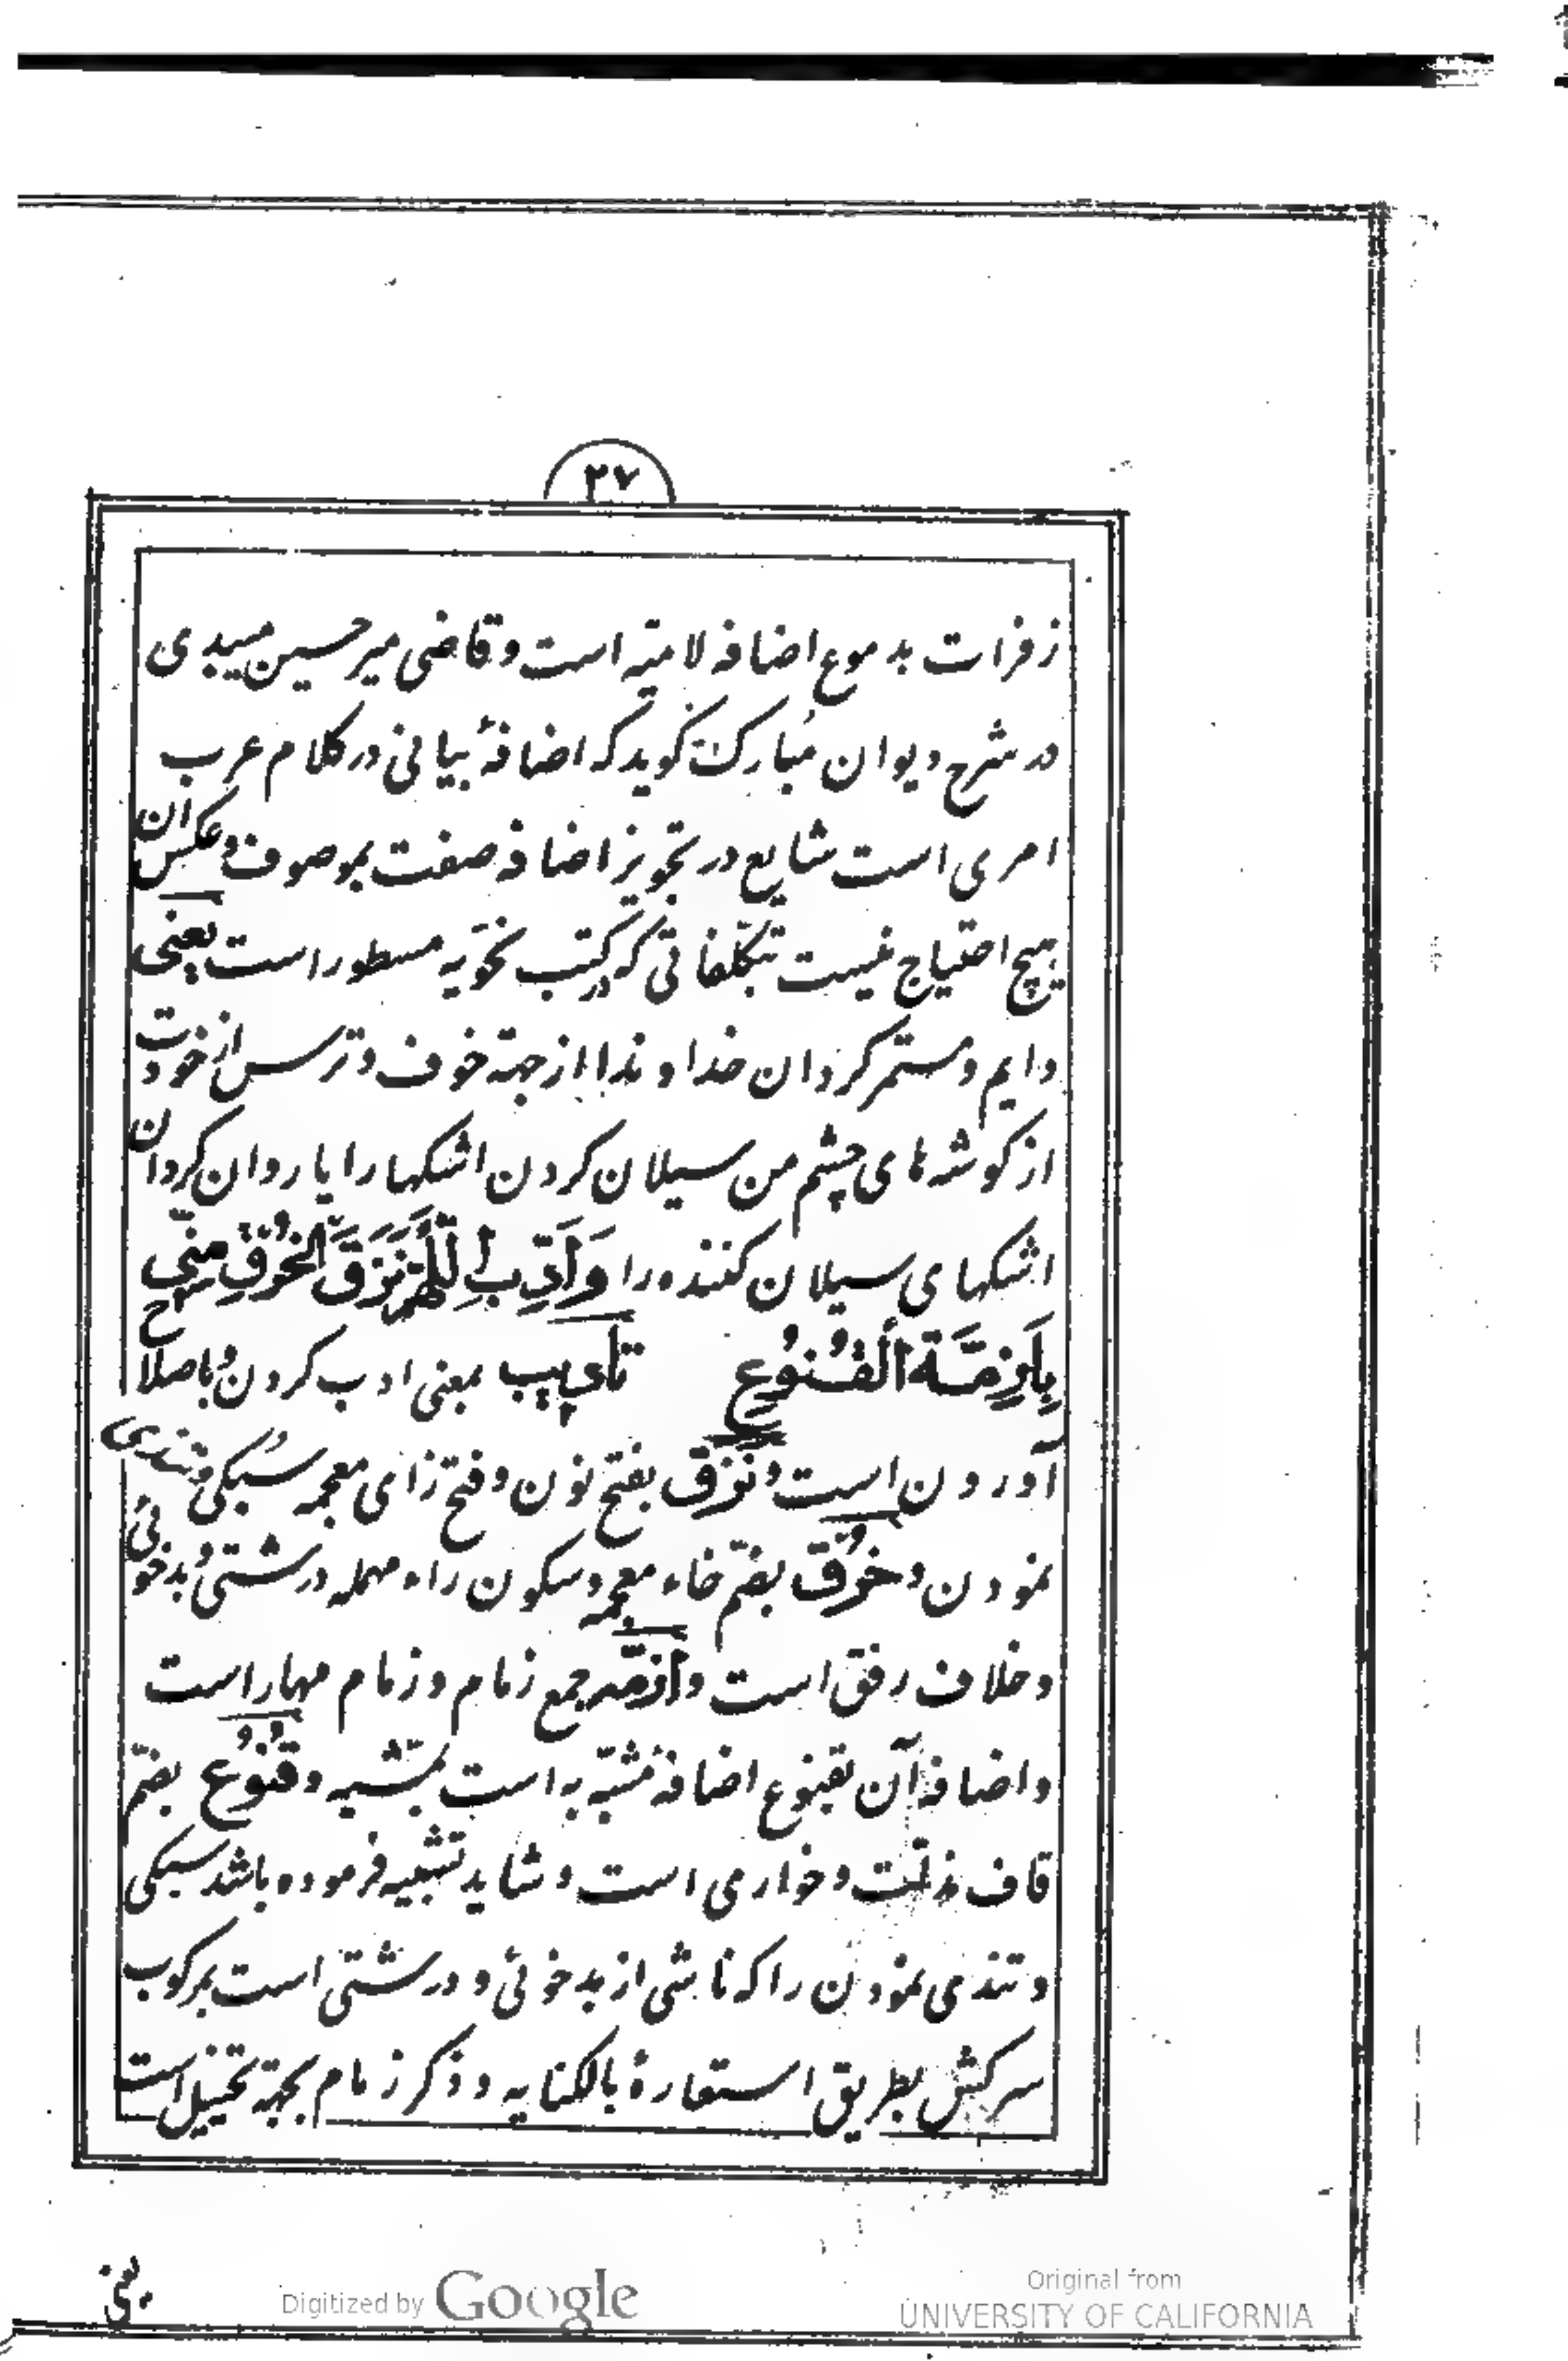 ۳۷
زفرات بدموع اضافه لامیّه است و قاضی میرحسین میبدی
در شرح دیوان مبارک گوید که اضافهٔ بیانی در کلام عرب
امری است شایع در تجویز اضافه صفت بموصوف و عکس ان
هیچ احتیاج نیست بتکلّفاتی که در کتب نحویّه مسطور است یعنی
دایم و مستمر گردان خداوندا از جهة خوف و ترس از خودت
از گوشه های چشم من سیلان کردن اشکها را یا روان گردان
اشکهای سیلان کننده را وَاَدِّبِ اللّٰهُمَّ نَزَقَ الْخُرْقِ مِنّی
بِاَزِمَّةِ الْقُنُوعِ تأدیب بمعنی ادب کردن و باصلاح
آوردن است و نَزَق بفتح نون و فتح زای معجمه سبکی و تندی
نمودن و خُرْق بضمّ خاء معجمه و سکون راء مهمله درشتی و بدخوئی
و خلاف رفق است و ازمّه جمع زمام و زمام مهار است
و اضافهٔ آن بقنوع اضافهٔ مشبّه به است بمشبّه و قُنُوع بضمّ
قاف مذلّت و خواری است و شاید تشبیه فرموده باشد سبکی
و تندی نمودن را که ناشی از بدخوئی و درشتی است بمرکوب
سرکش بطریق استعارهٔ بالکنایه و ذکر زمام بجهة تخییل است
یعنی
Digitized by Google
Original from
UNIVERSITY OF CALIFORNIA